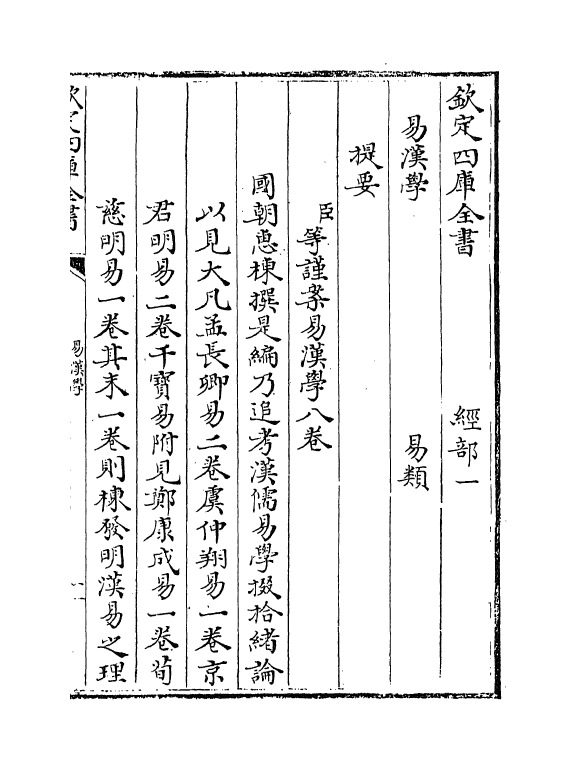 欽定四庫全書 經部一
易漢學 易類
提要
臣等謹案易漢學八卷
國朝惠棟撰是編乃追考漢儒易學掇拾緒論
以見大凡孟長卿易二卷虞仲翔易一卷京
君明易二卷干寶易附見鄭康成易一卷荀
慈明易一卷其末一卷則棟發明漢易之理
欽定四庫全書
易漢學
一